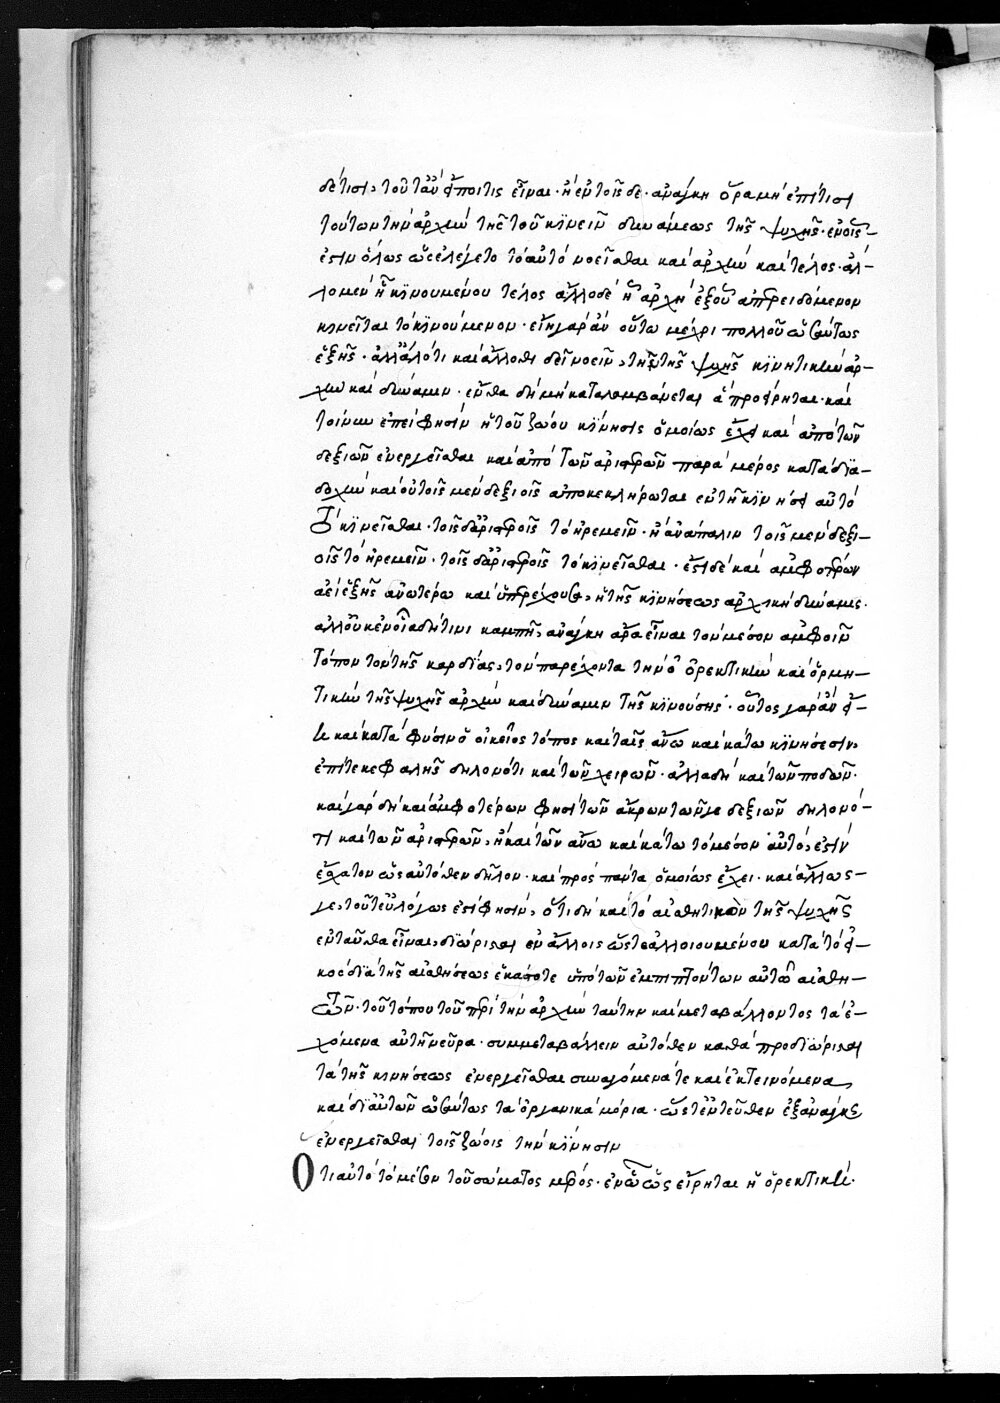 δέ τισι, τοῦτ' ἂν εἴποι τις εἶναι· ἢ ἐν τοῖσδε· ἀνάγκη ἄρα μὴ ἐπί τισι
τούτων τὴν ἀρχὴν τῆς τοῦ κινεῖν δυνάμεως τῆς ψυχῆς· ἐν οἷς
ἐστιν ὅλως ὡς ἐλέγετο τὸ αὐτὸ νοεῖσθαι καὶ ἀρχὴν καὶ τέλος· ἀλ-
λο μὲν ἦ κινουμένου τέλος ἄλλο δέ ἡ ἀρχὴ ἐξ οὗ ἀπερειδόμενον
κινεῖται τὸ κινούμενον· εἴη γὰρ ἂν οὕτω μέχρι πολλοῦ ὡσαύτως
ἑξῆς· ἀλλ' ἄλλοτι καὶ ἄλλοθι δεῖ νοεῖν, τὴν τῆς ψυχῆς κινητικὴν ἀρ-
χὴν καὶ δύναμιν· ἔνθα δὴ μὴ καταλαμβάνεται ἃ προείρηται· καὶ
τοίνυν ἐπεί φησιν ἡ τοῦ ζώου κίνησις ὁμοίως ἔχει καὶ ἀπὸ τῶν
δεξιῶν ἐνεργεῖσθαι καὶ ἀπὸ τῶν ἀριστερῶν παρὰ μέρος κατὰ δια-
δοχὴν καὶ οὐ τοῖς μὲν δεξιοῖς ἀποκεκλήρωται ἐν τῇ κινήσει αὐτὸ
τὸ κινεῖσθαι· τοῖς δ' ἀριστεροῖς τὸ ἠρεμεῖν· ἢ ἀνάπαλιν τοῖς μὲν δεξι-
οῖς τὸ ἠρεμεῖν· τοῖς δ' ἀριστεροῖς τὸ κινεῖσθαι· ἔστι δὲ καὶ ἀμφοτέρων
ἀεὶ ἑξῆς ἀνωτέρω καὶ ὑπερέχουσα, ἡ τῆς κινήσεως ἀρχικὴ δύναμις·
ἀλλ' οὐκ ἐν οἱαδήτινι καμπῇ, ἀνάγκη ἄρα εἶναι τὸν μέσον ἀμφοῖν
τόπον τὸν τῆς καρδίας, τὸν παρέχοντα τὴν ὀρεκτικὴν καὶ ὁρμη-
τικὴν τῆς ψυχῆς ἀρχὴν καὶ δύναμιν τῆς κινούσης· οὗτος γὰρ ἂν εἴ-
η καὶ κατὰ φύσιν ὁ οἰκεῖος τόπος καὶ ταῖς ἄνω καὶ κάτω κινήσεσιν,
ἐπί τε κεφαλῆς δηλονότι καὶ τῶν χειρῶν· ἀλλὰ δὴ καὶ τῶν ποδῶν·
καὶ γὰρ δὴ καὶ ἀμφοτέρων φησὶ τῶν ἄκρων τῶν γε δεξιῶν δηλονό-
τι καὶ τῶν ἀριστερῶν, ἢ καὶ τῶν ἄνω καὶ κάτω τὸ μέσον αὐτό, ἐστὶν
ἔσχατον ὡς αὐτόθεν δῆλον· καὶ πρὸς πάντα ὁμοίως ἔχει· καὶ ἄλλως
γε, τοῦτ' εὐλόγως ἐστί φησιν, ὅτι δὴ καὶ τὸ αἰσθητικὸν τῆς ψυχῆς
ἐνταῦθα εἶναι, διώρισται ἐν ἄλλοις ὥστε ἀλλοιουμένου κατὰ τὸ εἰ-
κὸς διὰ τῆς αἰσθήσεως ἑκάστοτε ὑπὸ τῶν ἐμπιπτόντων αὐτῷ αἰσθη-
τῶν· τοῦ τόπου τοῦ περὶ τὴν ἀρχὴν ταύτην καὶ μεταβάλλοντος τὰ ἐ-
χόμενα αὐτῇ νεῦρα· συμμεταβάλλειν αὐτόθεν καθὰ προδιώρισται
τὰ τῆς κινήσεως ἐνεργεῖσθαι συναγόμενά τε καὶ ἐκτεινόμενα,
καὶ δι' αὐτῶν ὡσαύτως τὰ ὀργανικὰ μόρια· ὥστ' ἐντεῦθεν ἐξανάγκης
ἐνεργεῖσθαι τοῖς ζώοις τὴν κίνησιν
Ὅτι αὐτὸ τὸ μέσον τοῦ σώματος μέρος· ἐν ᾧ ὡς εἴρηται ἡ ὀρεκτικὴ·